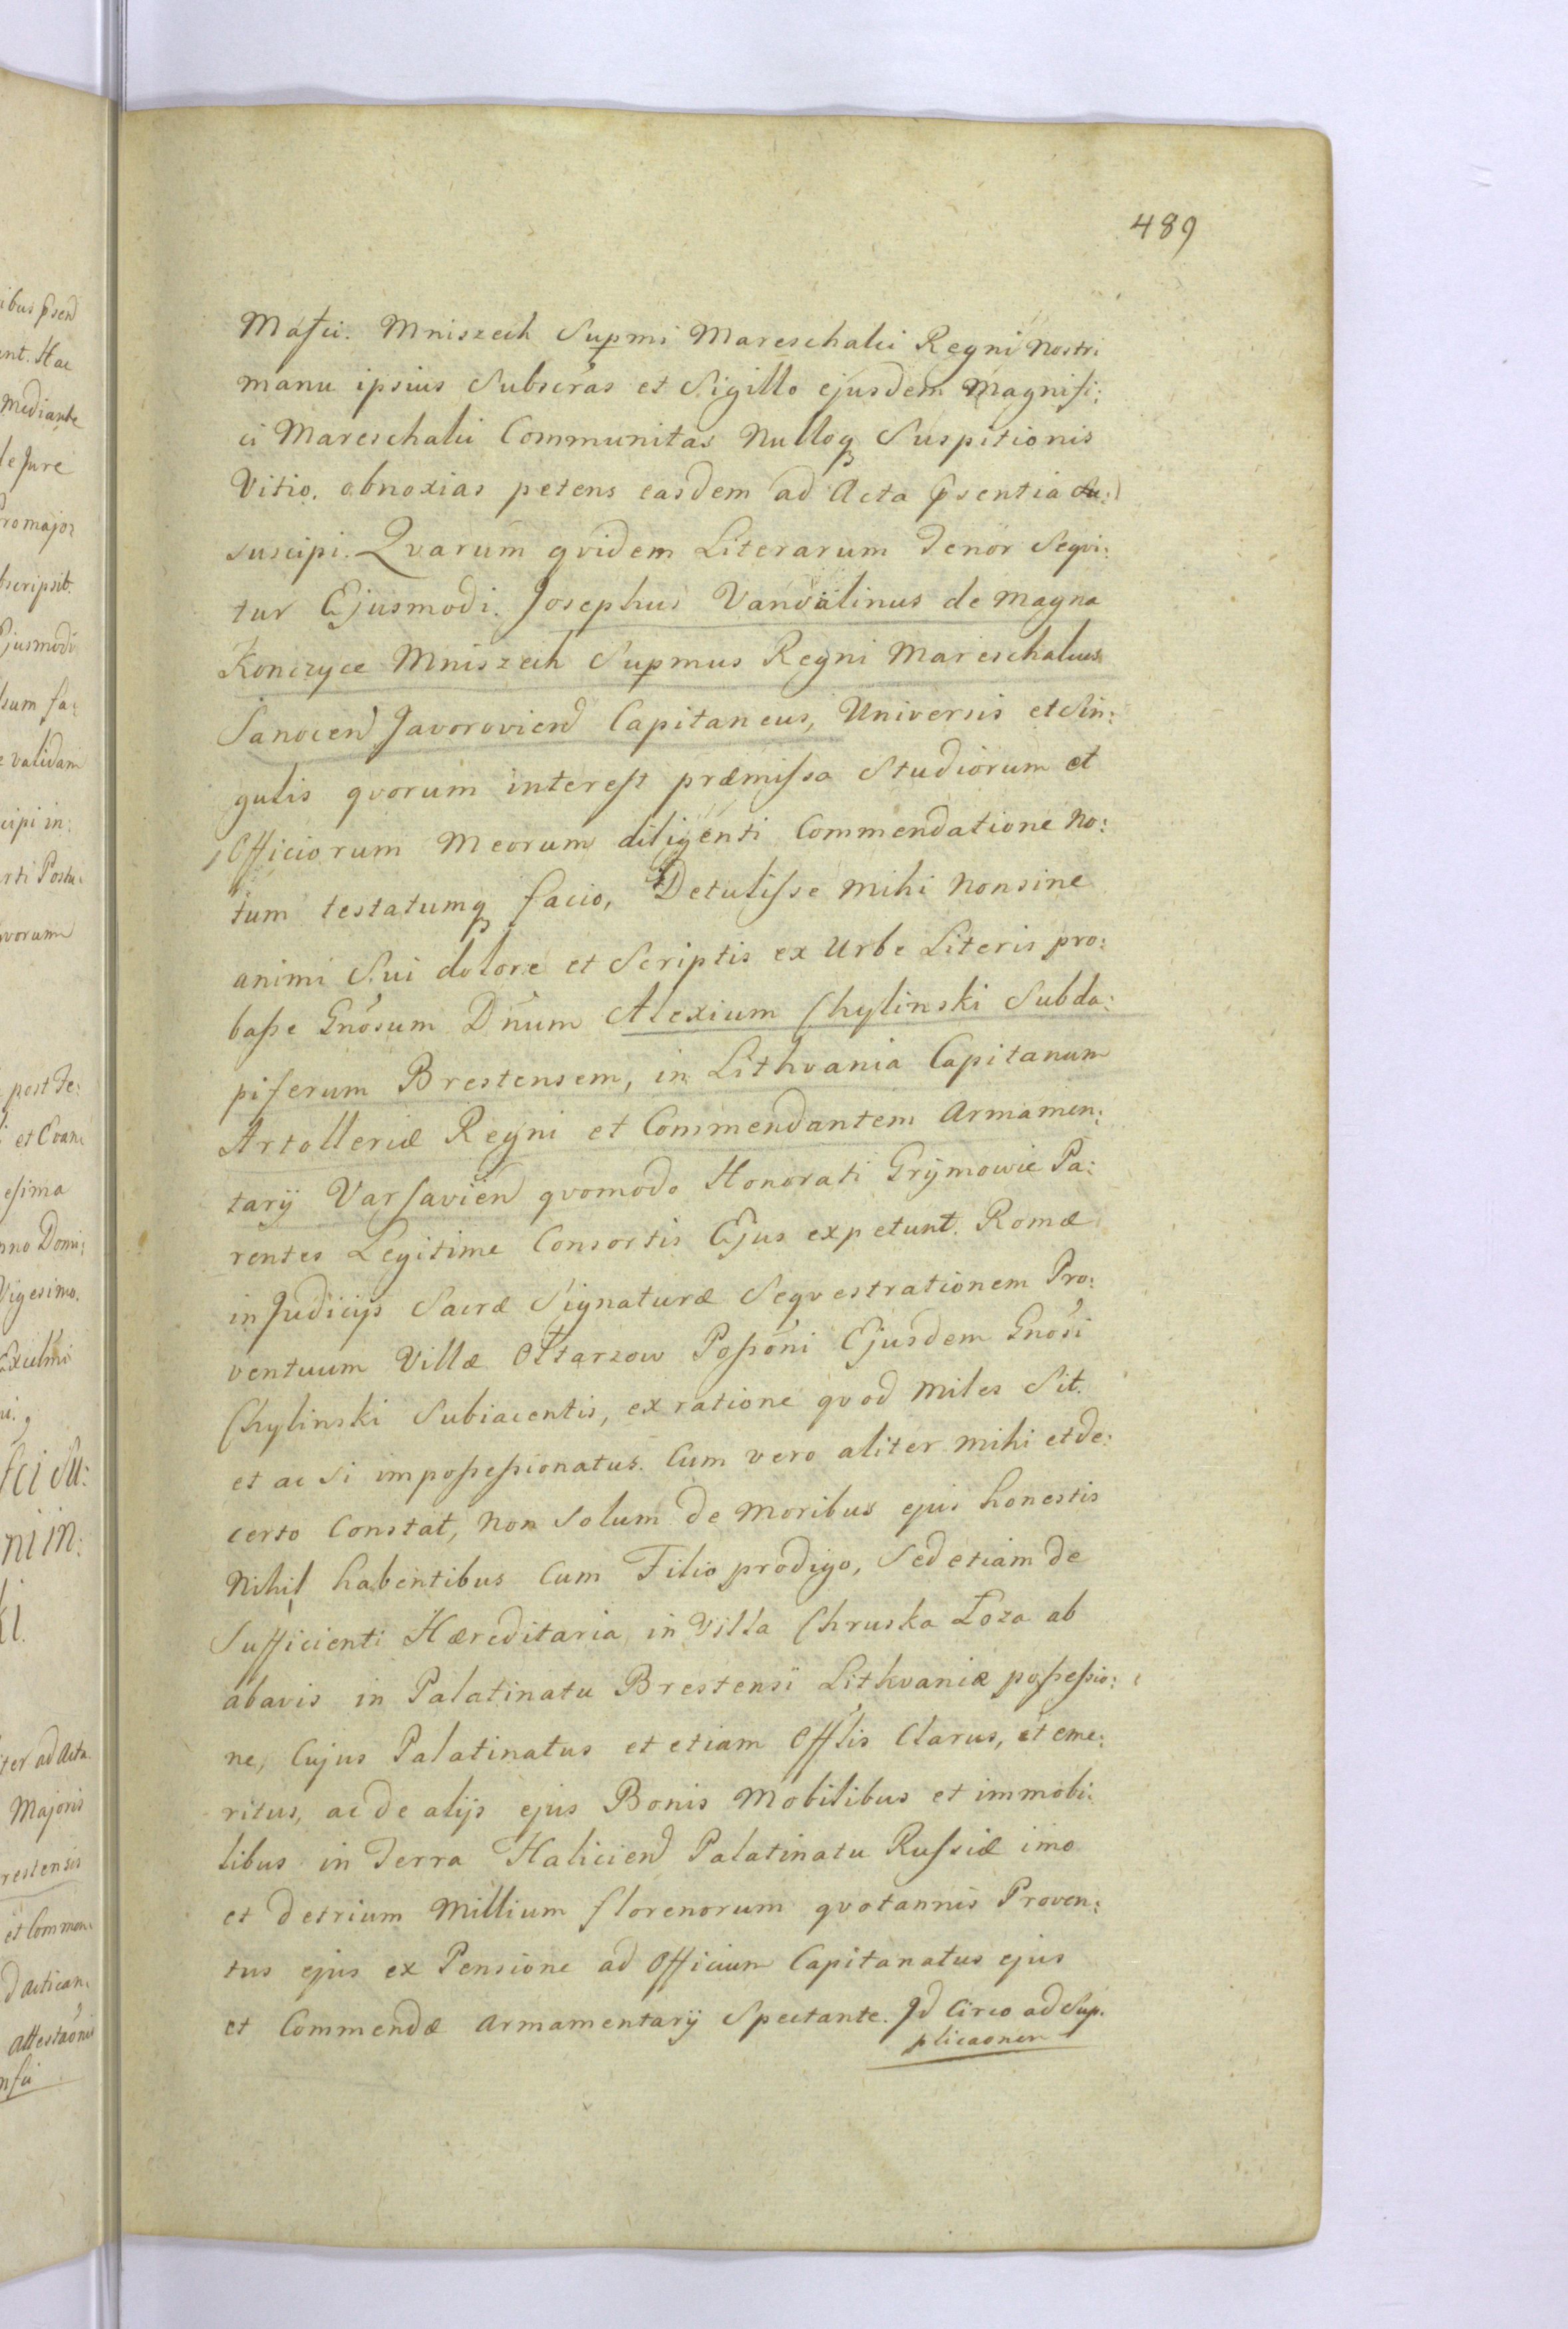 489
Mafici. Mniszech Supmi Mareschalci Regni Nostri
manu ipsius Subscras et Sigillo ejusdem Magnifi:
ci Mareschalci Communitas Nulloq Suspitionis
Vitio. obnoxias petens easdem ad Acta Psentia
suscipi. Qvarum qvidem Literarum Tenor Seqvi:
tur Ejusmodi. Josephus Vandalinus de Magna
Konczyce Mniszech Supmus Regni Mareschalcus
Sanocen Javorovien Capitaneus, Universis et Sin:
gulis qvorum interest præmissa Studiorum et
Officiorum Meorum diligenti Commendatione No:
tum testatumq facio, Detulisse mihi Non sine
animi Sui dolore et Scriptis ex Urbe Literis pro:
basse Gnosum Dnum Alexium Chylinski Subda:
piferum Brestensem, in Lithvania Capitanum
Artolleriæ Regni et Commendantem Armamen:
tarij Varsavien qvomodo Honorati Grijmowie Pa:
rentes Legitime Consortis Ejus expetunt. Romæ
in Judicijs Sacræ Signaturæ Seqvestrationem Pro:
ventuum Villæ Ottarzow Possoni Ejusdem Gnosi
Chylinski Subiacentis, ex ratione qvod Miles Sit.
et ac Si impossessionatus. Cum vero aliter Mihi et de:
certo Constat, Non Solum de Moribus ejus honestis
Nihil habentibus Cum Filio prodigo, Sed etiam de
Sufficienti Hæreditaria in Villa Chruska Loza ab
abavis in Palatinatu Brestensi Lithvaniæ possessio:
ne, Cujus Palatinatus et etiam Offlis Clarus, et eme:
ritus, ac de alijs ejus Bonis Mobilibus et immobi:
libus in Terra Halicien Palatinatu Russiæ imo
et de trium Millium florenorum qvotannis Proven:
tus ejus ex Pensione ad Officium Capitanatus ejus
et Commendæ Armamentarij Spectante. Jd Circo ad Sup.
plicaonem